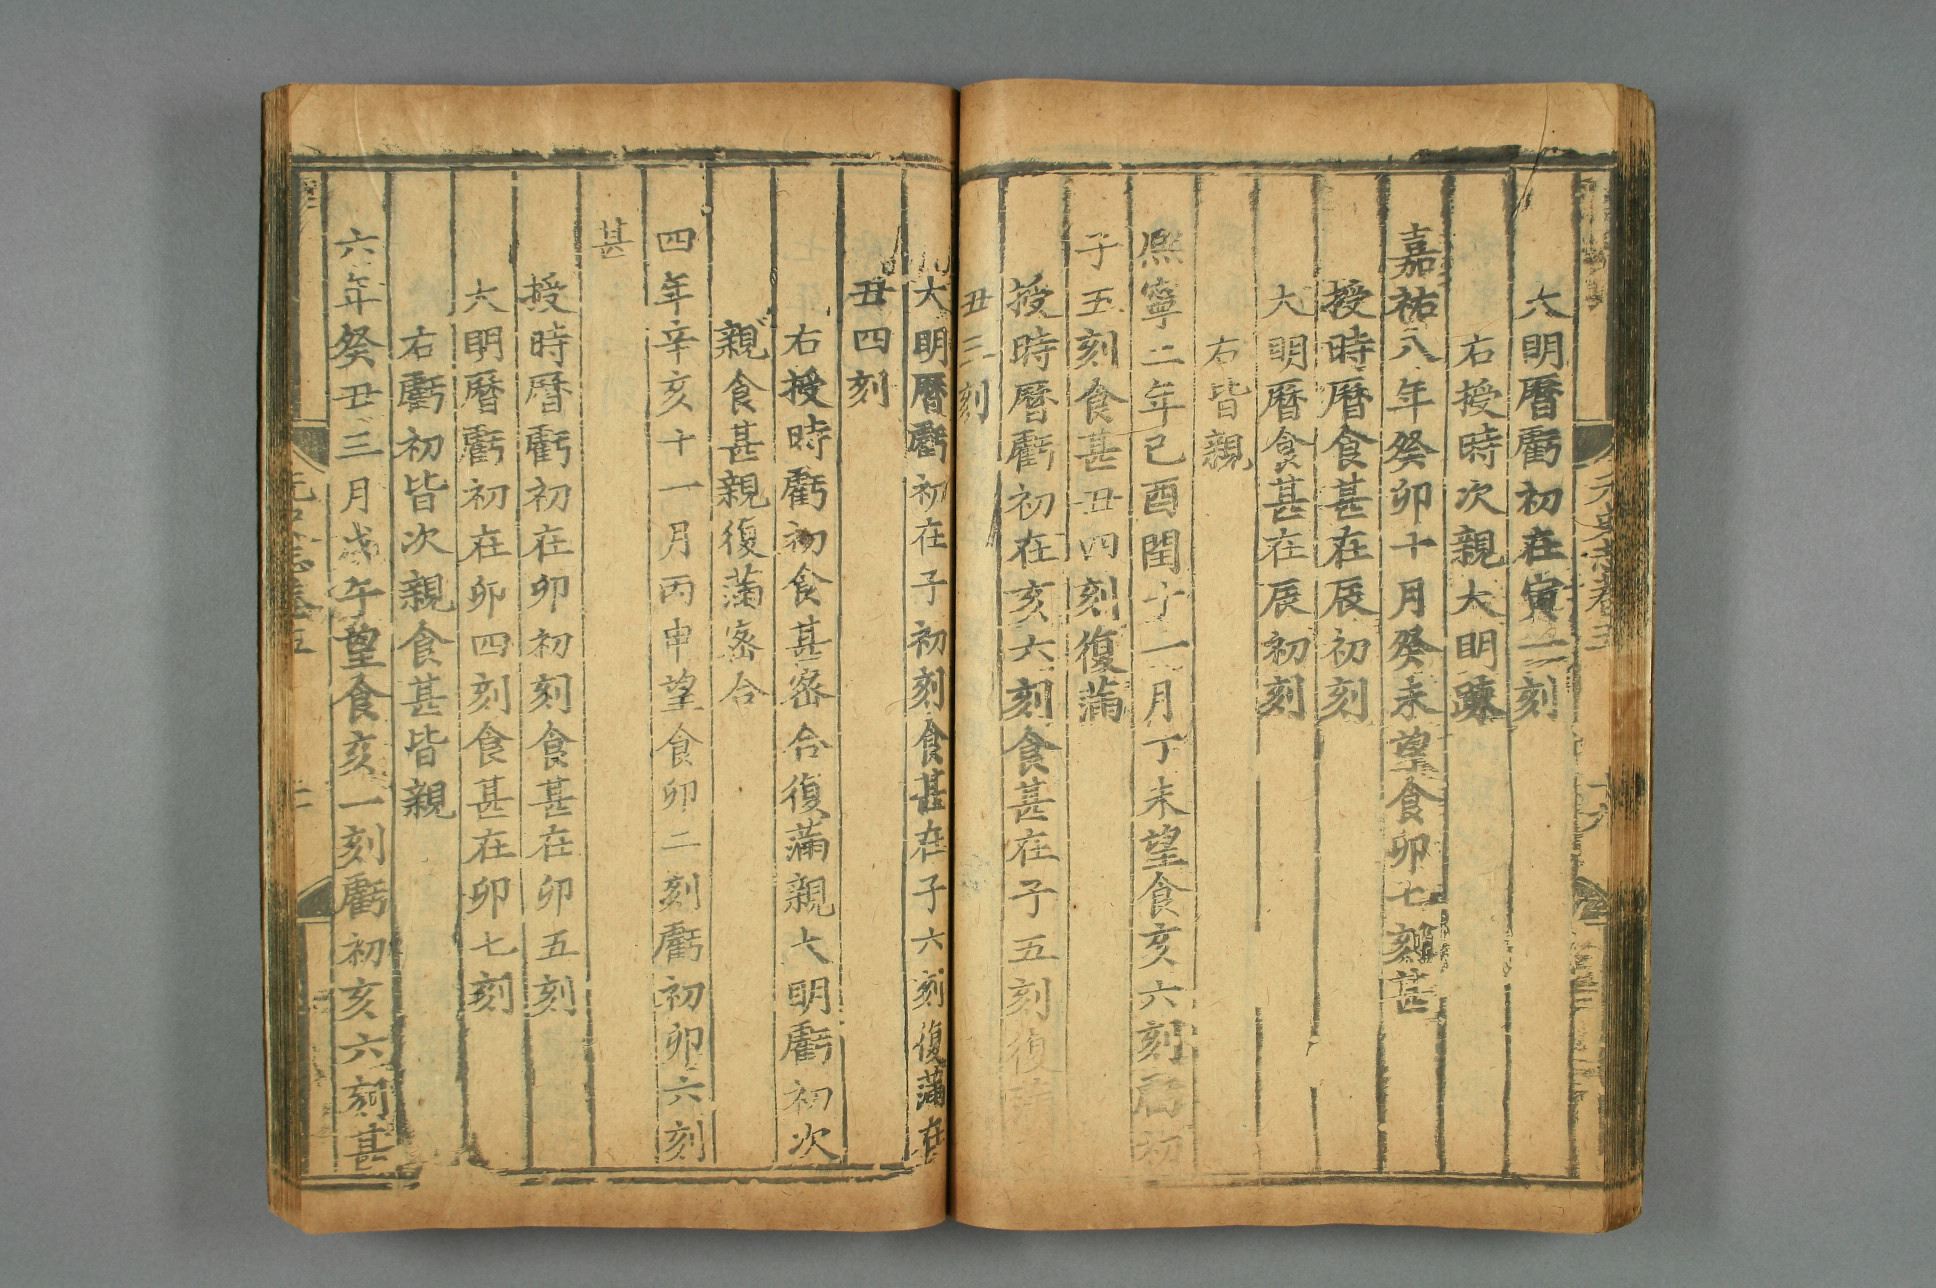 大明曆虧初在寅二刻
右授時次親大明踈
嘉祐八年癸卯十月癸未望食卯七刻甚
授時曆食甚在辰初刻
大明曆食甚在辰初刻
右皆親
熙寧二年己酉閏十一月丁未望食亥六刻虧初
子五刻食甚丑四刻復滿
授時曆虧初在亥六刻食甚在子五刻復滿
丑三刻
大明曆虧初在子初刻食甚在子六刻復滿在
丑四刻
右授時虧初食甚密合復滿親大明虧初次
親食甚親復滿密合
四年辛亥十一月丙申望食卯二刻虧初卯六刻
甚
授時曆虧初在卯初刻食甚在卯五刻
大明曆虧初在卯四刻食甚在卯七刻
右虧初皆次親食甚皆親
六年癸丑三月戊午望食亥一刻虧初亥六刻甚